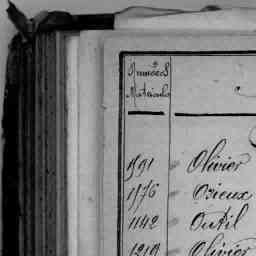 Numéros
Matricule
1591 Olivier
1576 Ozieux
1142 Outil
1219 Olivier